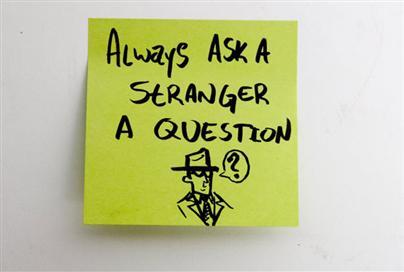 Always ASK A
STRANGER
A QUESTION
?